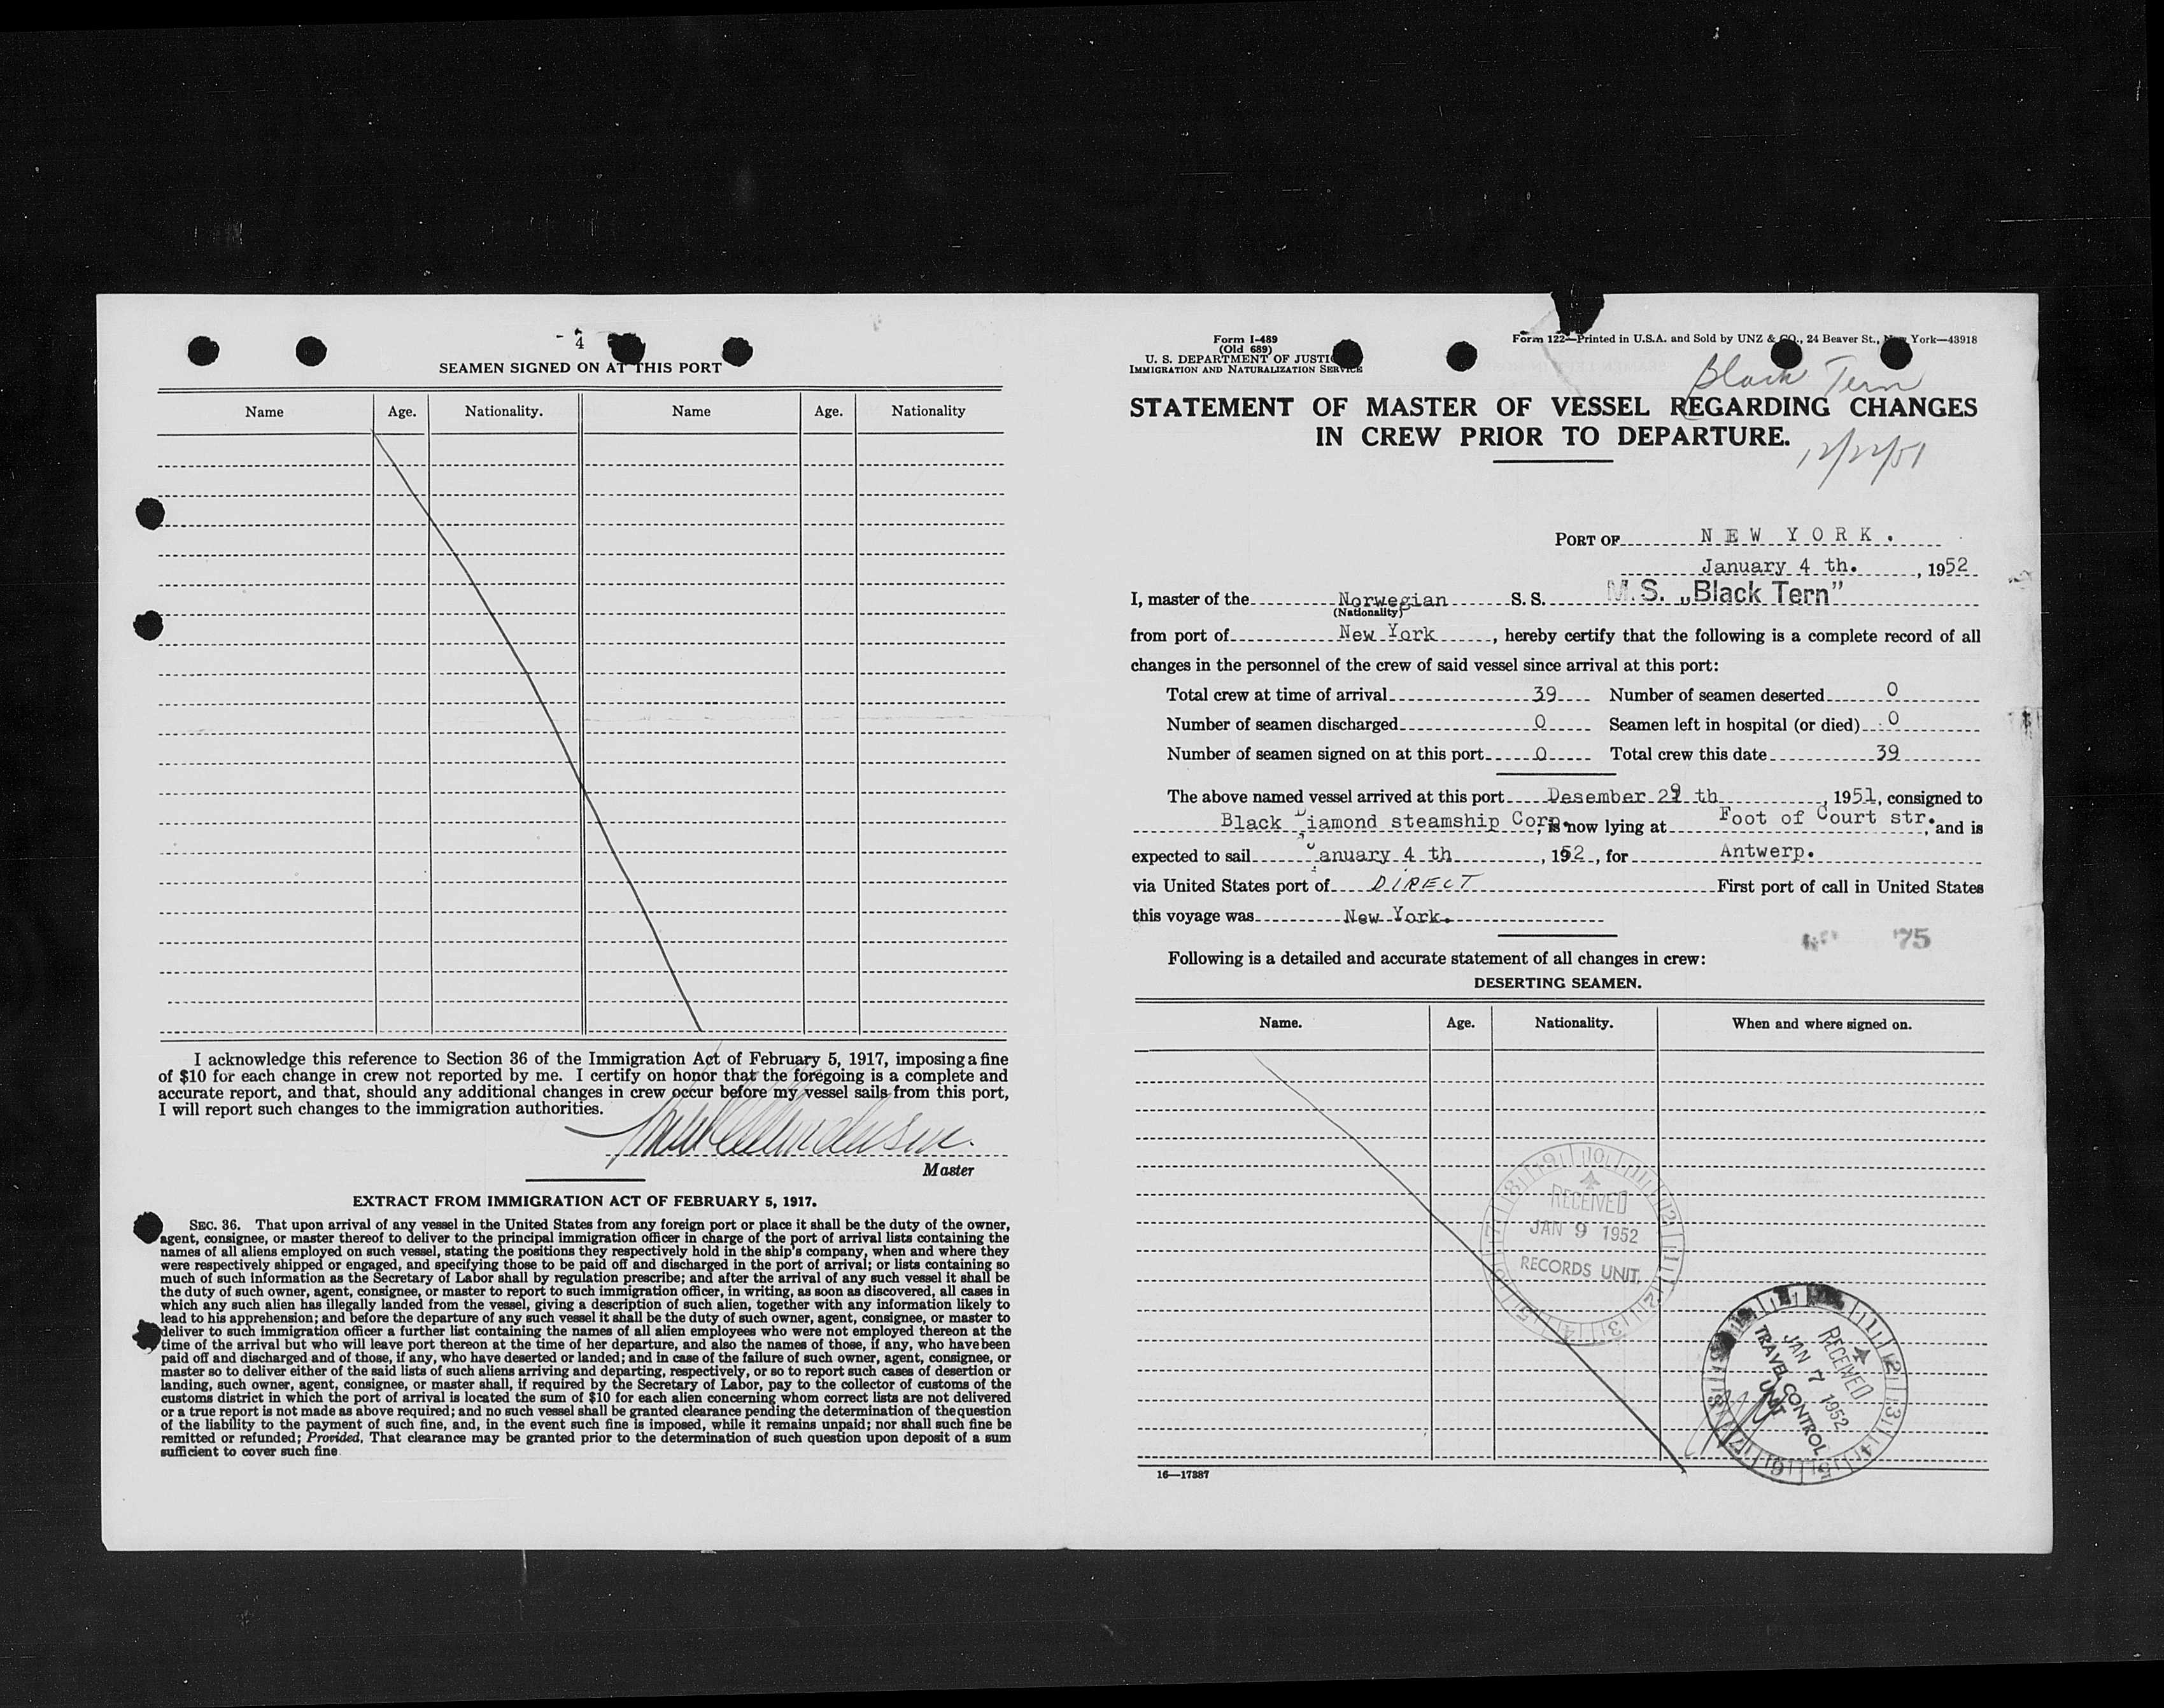 - 4
SEAMEN SIGNED ON AT THIS PORT
Name Age. Nationality. Name Age. Nationality
I acknowledge this reference to Section 36 of the Immigration Act of February 5, 1917, imposing a fine
of $10 for each change in crew not reported by me. I certify on honor that the foregoing is a complete and
accurate report, and that, should any additional changes in crew occur before my vessel sails from this port,
I will report such changes to the immigration authorities.
Master
EXTRACT FROM IMMIGRATION ACT OF FEBRUARY 5, 1917.
SEC. 36. That upon arrival of any vessel in the United States from any foreign port or place it shall be the duty of the owner,
agent, consignee, or master thereof to deliver to the principal immigration officer in charge of the port of arrival lists containing the
names of all aliens employed on such vessel, stating the positions they respectively hold in the ship's company, when and where they
were respectively shipped or engaged, and specifying those to be paid off and discharged in the port of arrival; or lists containing so
much of such information as the Secretary of Labor shall by regulation prescribe; and after the arrival of any such vessel it shall be
the duty of such owner, agent, consignee, or master to report to such immigration officer, in writing, as soon as discovered, all cases in
which any such alien has illegally landed from the vessel, giving a description of such alien, together with any information likely to
lead to his apprehension; and before the departure of any such vessel it shall be the duty of such owner, agent, consignee, or master to
deliver to such immigration officer a further list containing the names of all alien employees who were not employed thereon at the
time of the arrival but who will leave port thereon at the time of her departure, and also the names of those, if any, who have been
paid off and discharged and of those, if any, who have deserted or landed; and in case of the failure of such owner, agent, consignee, or
master so to deliver either of the said lists of such aliens arriving and departing, respectively, or so to report such cases of desertion or
landing, such owner, agent, consignee, or master shall, if required by the Secretary of Labor, pay to the collector of customs of the
customs district in which the port of arrival is located the sum of $10 for each alien concerning whom correct lists are not delivered
or a true report is not made as above required; and no such vessel shall be granted clearance pending the determination of the question
of the liability to the payment of such fine, and, in the event such fine is imposed, while it remains unpaid; nor shall such fine be
remitted or refunded; Provided, That clearance may be granted prior to the determination of such question upon deposit of a sum
sufficient to cover such fine.
Form I-489
(Old 689)
U. S. DEPARTMENT OF JUSTICE
IMMIGRATION AND NATURALIZATION SERVICE
Form 122—Printed in U.S.A. and Sold by UNZ & CO., 24 Beaver St., New York—43918
Black Tern
STATEMENT OF MASTER OF VESSEL REGARDING CHANGES
IN CREW PRIOR TO DEPARTURE.
12/22/51
PORT OF NEW YORK.
January 4 th. , 1952
I, master of the Norwegian S. S. M.S. „Black Tern”
(Nationality)
from port of New York , hereby certify that the following is a complete record of all
changes in the personnel of the crew of said vessel since arrival at this port:
Total crew at time of arrival 39 Number of seamen deserted 0
Number of seamen discharged 0 Seamen left in hospital (or died) 0
Number of seamen signed on at this port 0 Total crew this date 39
The above named vessel arrived at this port Desember 29 th , 1951, consigned to
Black Diamond steamship Corp. , is now lying at Foot of Court str. , and is
expected to sail January 4 th , 1952 , for Antwerp.
via United States port of DIRECT First port of call in United States
this voyage was New York.
75
Following is a detailed and accurate statement of all changes in crew:
DESERTING SEAMEN.
Name. Age. Nationality. When and where signed on.
RECEIVED
JAN 9 1952
RECORDS UNIT.
RECEIVED
JAN 7 1952
TRAVEL CONTROL
UNIT
16—17387